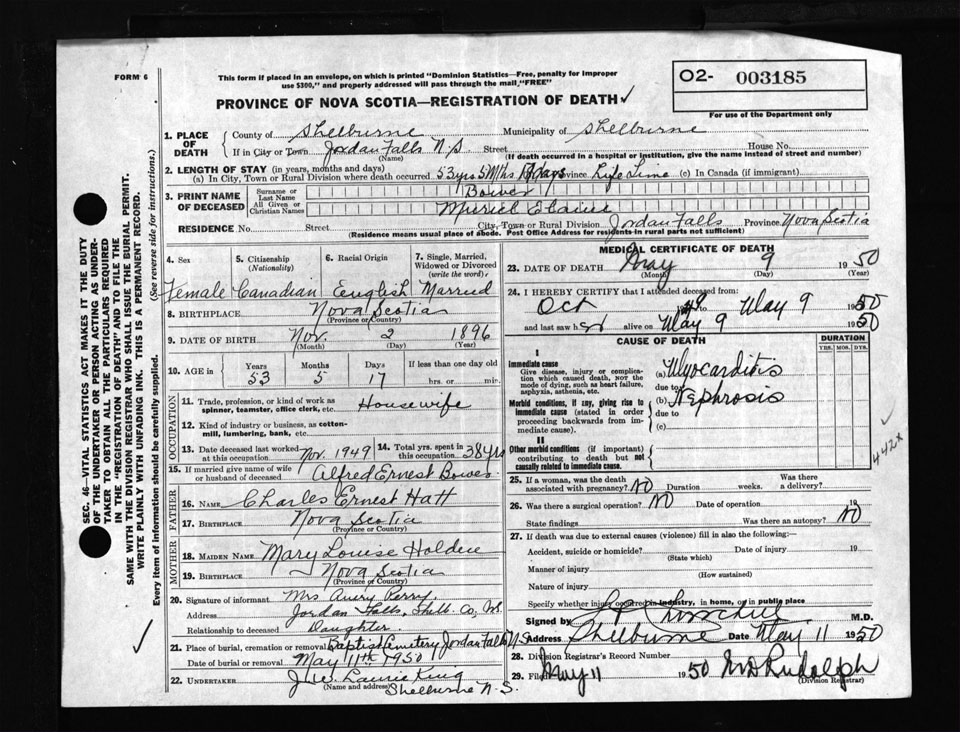 FORM 6
This form if placed in an envelope, on which is printed "Dominion Statistics—Free, penalty for improper
use $300," and properly addressed will pass through the mail "FREE"
O2- 003185
For use of the Department only
PROVINCE OF NOVA SCOTIA—REGISTRATION OF DEATH ✓
1. PLACE OF DEATH { County of Shelburne Municipality of Shelburne
If in City or Town Jordan Falls N.S. Street House No.
(Name) (If death occurred in a hospital or institution, give the name instead of street and number)
2. LENGTH OF STAY (in years, months and days)
(a) In City, Town or Rural Division where death occurred 53 yrs 5 Mths 17 days Province Life Time (c) In Canada (if immigrant)
3. PRINT NAME OF DECEASED { Surname or Last Name Bower
All Given or Christian Names Muriel Elaine
RESIDENCE No. Street City, Town or Rural Division Jordan Falls Province Nova Scotia
(Residence means usual place of abode. Post Office Address for residents in rural parts not sufficient)
4. Sex 5. Citizenship (Nationality) 6. Racial Origin 7. Single, Married, Widowed or Divorced (write the word)
Female Canadian English Married
8. BIRTHPLACE Nova Scotia
(Province or Country)
9. DATE OF BIRTH Nov. 2 1896
(Month) (Day) (Year)
10. AGE in Years Months Days If less than one day old
53 5 17 hrs. or min.
OCCUPATION
11. Trade, profession, or kind of work as spinner, teamster, office clerk, etc. Housewife
12. Kind of industry or business, as cotton-mill, lumbering, bank, etc.
13. Date deceased last worked at this occupation Nov. 1949 14. Total yrs. spent in this occupation 38 yrs
15. If married give name of wife or husband of deceased Alfred Ernest Bower
FATHER
16. NAME Charles Ernest Hatt
17. BIRTHPLACE Nova Scotia
(Province or Country)
MOTHER
18. MAIDEN NAME Mary Louise Holden
19. BIRTHPLACE Nova Scotia
(Province or Country)
20. Signature of informant Mrs Avery Perry
Address Jordan Falls, Shelb. Co, N.S.
Relationship to deceased Daughter
21. Place of burial, cremation or removal Baptist Cemetery Jordan Falls N.S.
Date of burial or removal May 11th 1950
22. UNDERTAKER J.W. Laurie King
(Name and address) Shelburne N.S.
MEDICAL CERTIFICATE OF DEATH
23. DATE OF DEATH May 9 1950
(Month) (Day) (Year)
24. I HEREBY CERTIFY that I attended deceased from
Oct to May 9 1950
and last saw h alive on May 9 1950
CAUSE OF DEATH DURATION
YRS. MOS. DYS.
I
Immediate cause
Give disease, injury or complication which caused death, NOT the mode of dying, such as heart failure, asphyxia, asthenia, etc.
(a) Myocarditis
due to
Morbid conditions, if any, giving rise to immediate cause (stated in order proceeding backwards from immediate cause).
(b) Nephrosis
due to
(c)
II
Other morbid conditions (if important) contributing to death but not causally related to immediate cause.
442x
25. If a woman, was the death associated with pregnancy? NO Duration weeks. Was there a delivery?
26. Was there a surgical operation? NO Date of operation 19
State findings Was there an autopsy? NO
27. If death was due to external causes (violence) fill in also the following:
Accident, suicide or homicide? Date of injury 19
(State which)
Manner of injury
(How sustained)
Nature of injury
Specify whether injury occurred in industry, in home, or in public place
Signed by M.D.
Address Shelburne Date May 11 1950
28. Division Registrar's Record Number
29. Filed May 11 1950 Rudolph
(Division Registrar)
SEC. 46—VITAL STATISTICS ACT MAKES IT THE DUTY
OF THE UNDERTAKER OR PERSON ACTING AS UNDER-
TAKER TO OBTAIN ALL THE PARTICULARS REQUIRED
IN THE "REGISTRATION OF DEATH" AND TO FILE THE
SAME WITH THE DIVISION REGISTRAR WHO SHALL ISSUE THE BURIAL PERMIT.
WRITE PLAINLY WITH UNFADING INK. THIS IS A PERMANENT RECORD.
Every item of information should be carefully supplied. (See reverse side for instructions.)